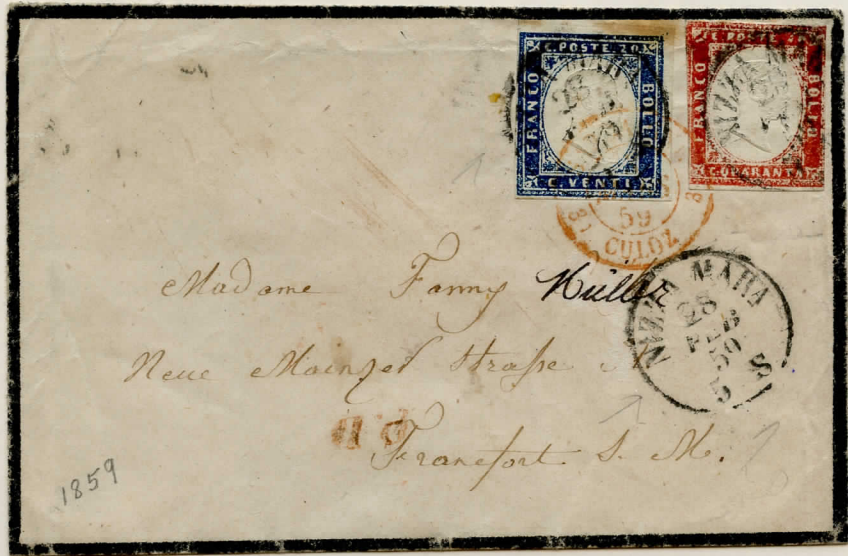 C. POSTE 20
FRANCO
BOLLO
C. VENTI
C. POSTE 40
FRANCO
BOLLO
C. QUARANTA
NIZZA MARA
28
FEB
59
NIZZA MARA
59
CULOZ
Madame Fanny Müller
Neue Mainzer Straße
Francfort s. M.
NIZZA MARA
28
FEB
59
5 S
P.D.
1859